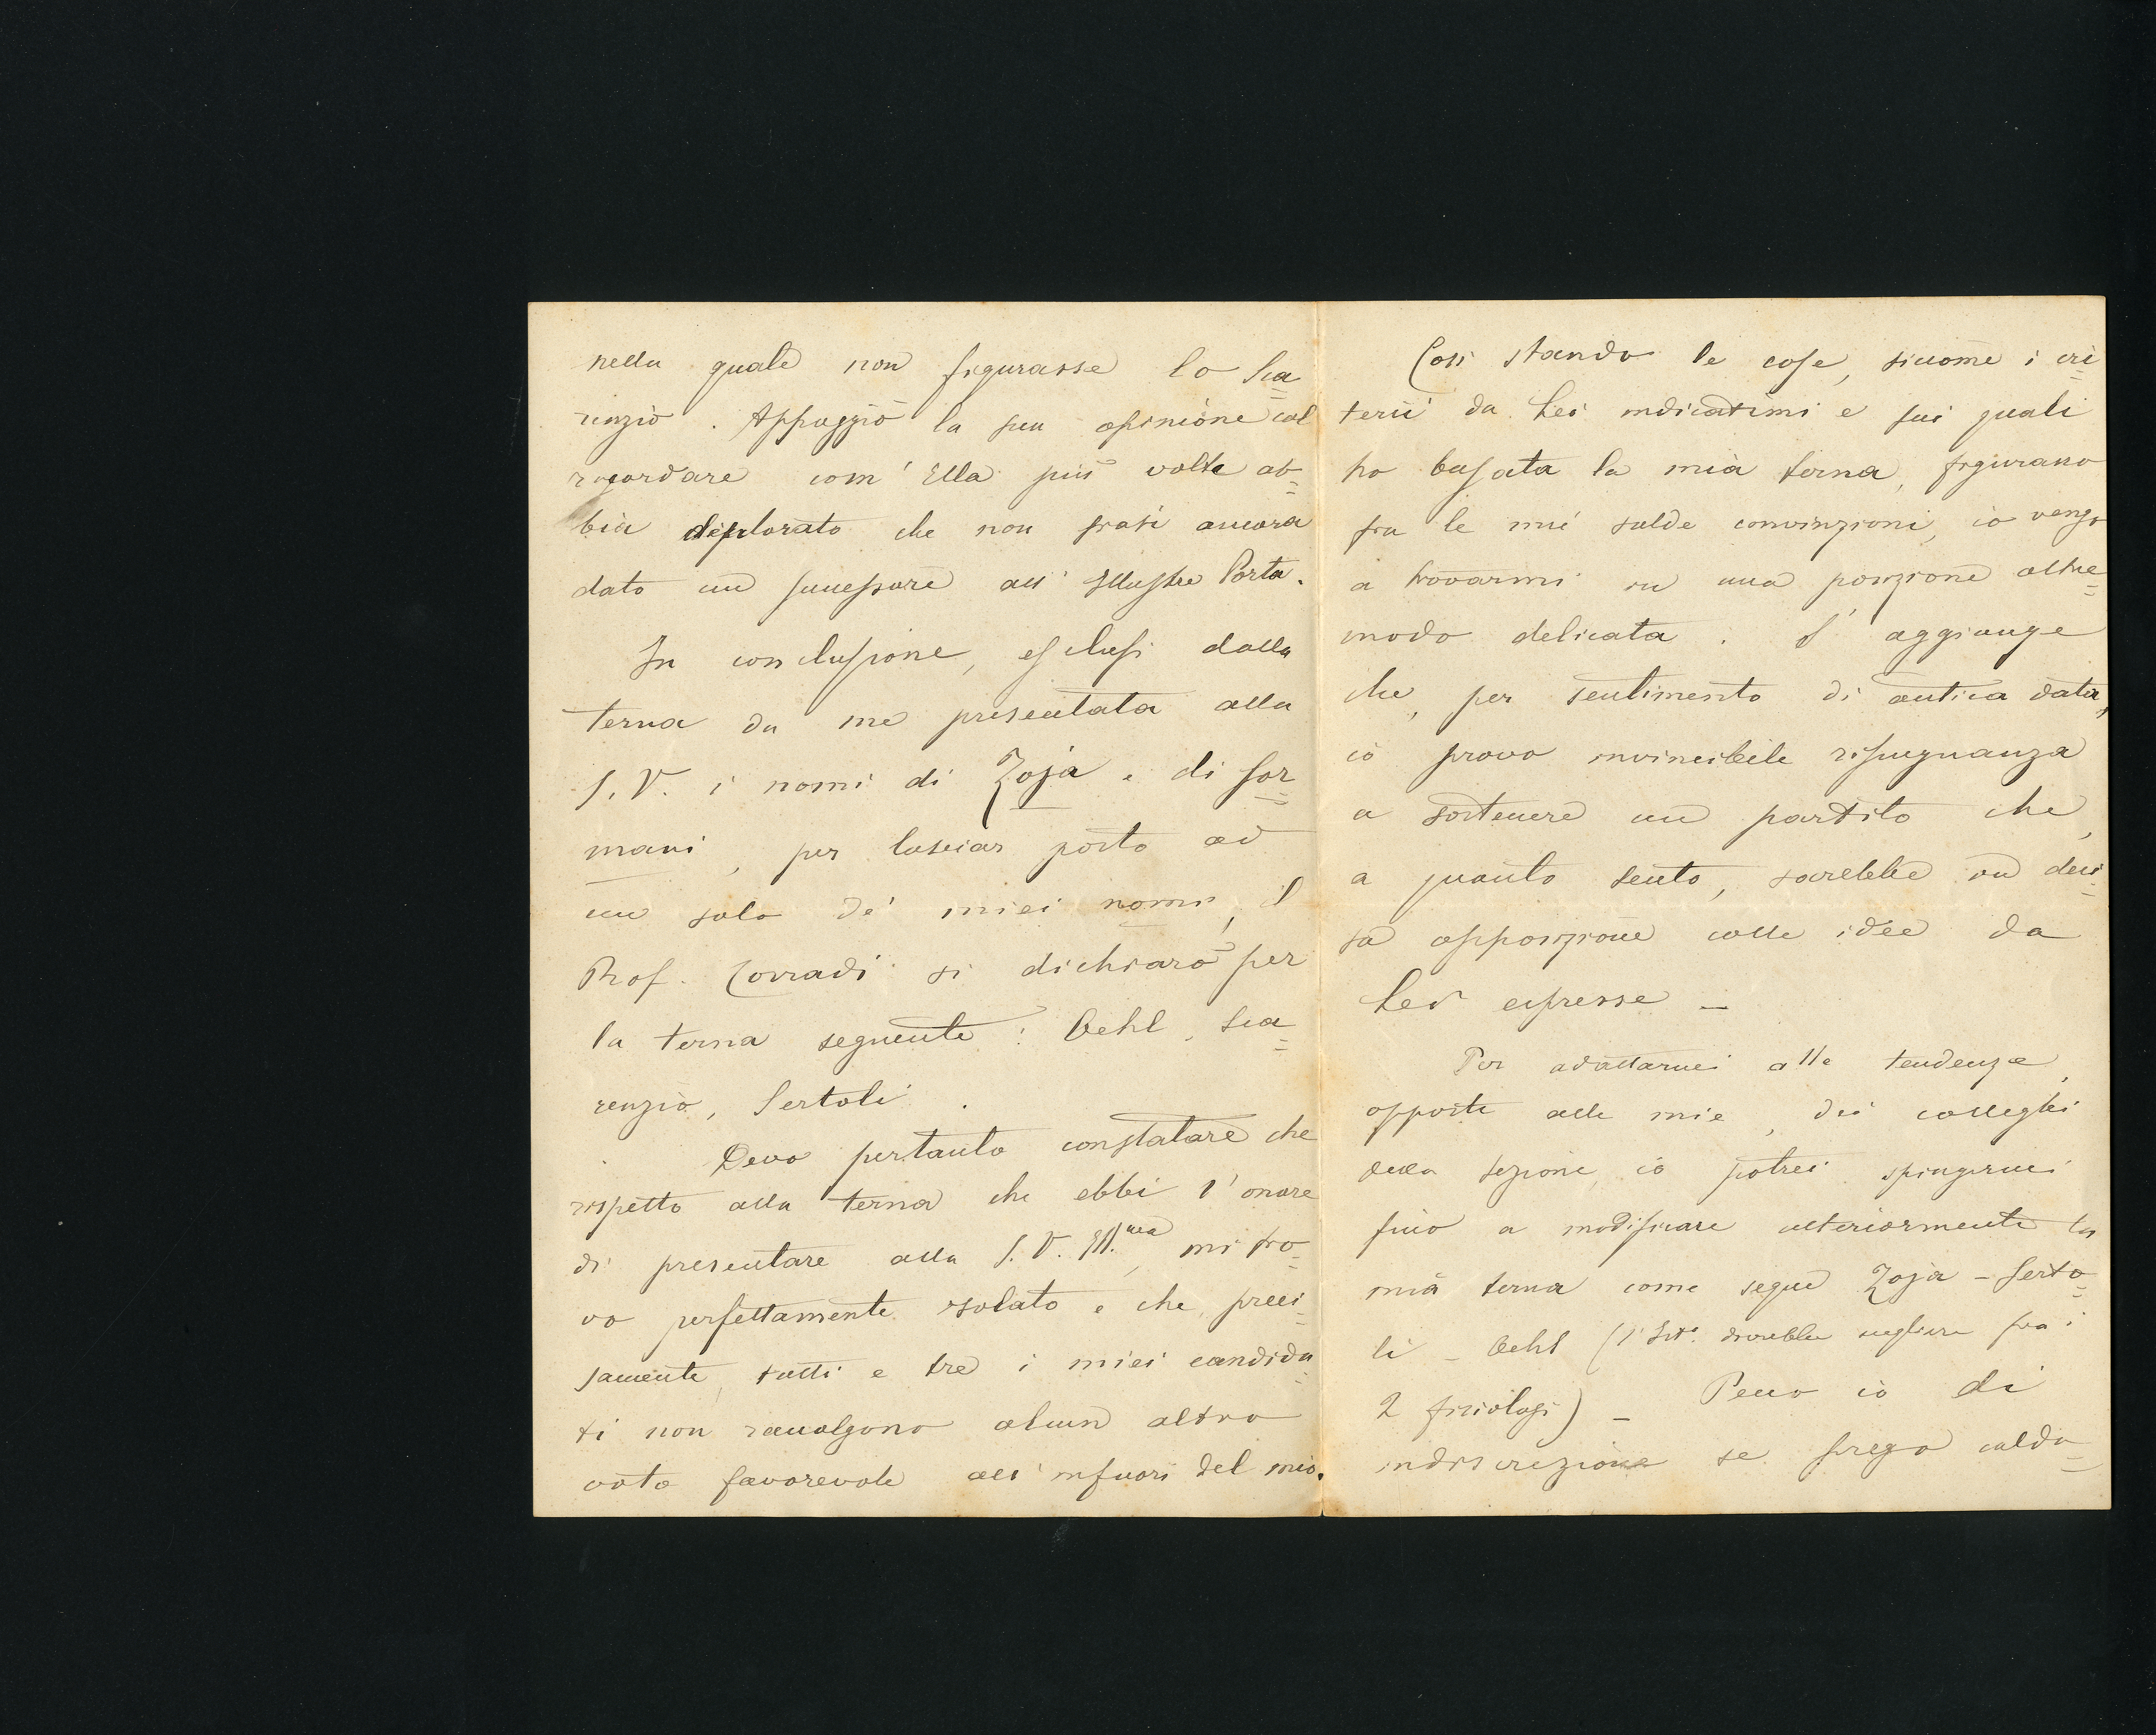 nella quale non figurasse lo Sca=
renzio. Appoggiò la sua opinione col
ricordare com' Ella più volte ab=
bia deplorato che non siasi ancora
dato un successore all' Illustre Porta.
In conclusione, esclusi dalla
terna da me presentata alla
S. V. i nomi di Zoja e di Sor=
mani, per lasciar posto ad
un solo de' miei nomi, il
Prof. Corradi si dichiarò per
la terna seguente: Oehl, Sca=
renzio, Sertoli.
Devo pertanto constatare che
rispetto alla terna che ebbi l' onore
di presentare alla S. V. Ill.ma, mi tro=
vo perfettamente isolato e che, preci=
samente, tutti e tre i miei candida=
ti non raccolgono alcun altro
voto favorevole all' infuori del mio.
Così stando le cose, siccome i cri=
terii da Lei indicatimi e sui quali
ho basata la mia terna, figurano
fra le mie salde convinzioni, io vengo
a trovarmi in una posizione oltre=
modo delicata. S' aggiunge
che, per sentimento di antica data,
io provo invincibile ripugnanza
a sostenere un partito che,
a quanto sento, sarebbe in deci=
sa opposizione colle idee da
Lei espresse —
Per adattarmi alle tendenze,
opposte alle mie, dei colleghi
della sezione, io potrei spingermi
fino a modificare ulteriormente la
mia terna come segue Zoja - Serto=
li - Oehl (l' Ist.o dovrebbe scegliere fra i
2 fisiologi) — Pecco io di
indiscrezione se prego calda=